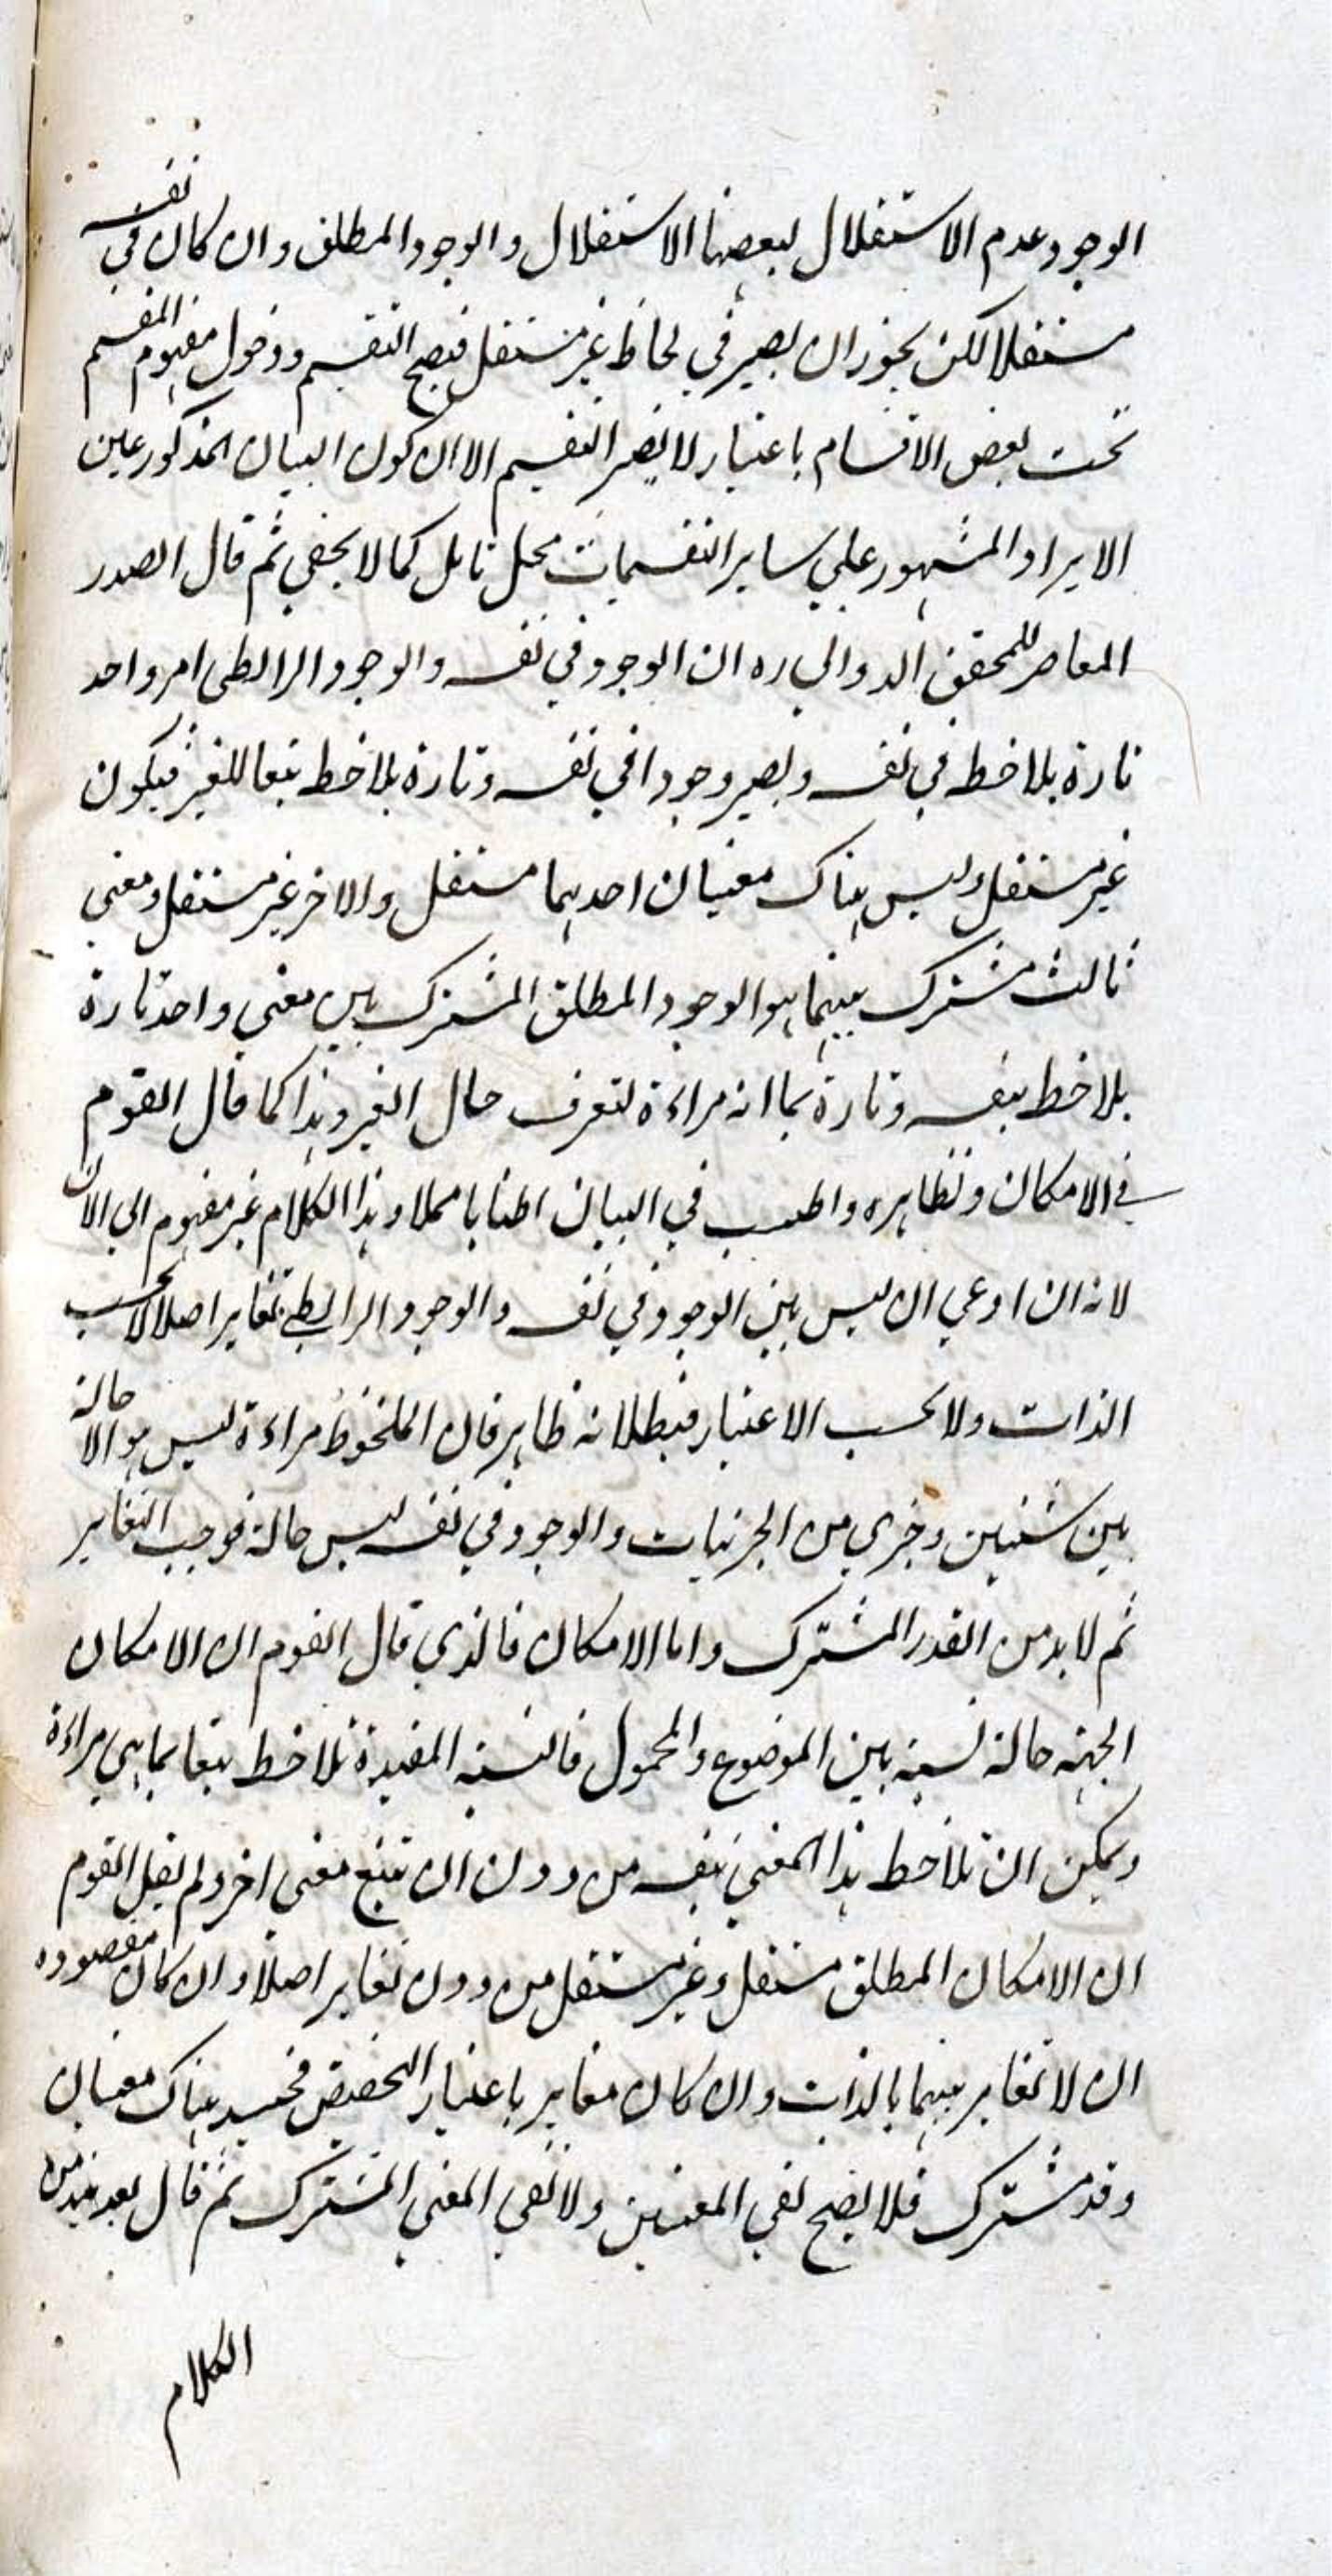 الوجود عدم الاستقلال لبعضها الاستقلال والوجود المطلق وان كان في نفسه
مستقلا لكن يجوز ان يصير في لحاظ غير مستقل فيصح التقسيم ودخول مفهوم المقسم
تحت بعض الاقسام باعتبار لا يضر التقسيم الا ان كون البيان المذكور عين
الايراد المشهور علي ساير التقسيمات محل تامل كما لا يخفي ثم قال الصدر
المعاصر للمحقق الدواني ره ان الوجود في نفسه والوجود الرابطي امر واحد
تارة يلاحظ في نفسه ويصير وجودا في نفسه وتارة يلاحظ تبعا للغير فيكون
غير مستقل وليس هناك معنيان احدهما مستقل والاخر غير مستقل ومعني
ثالث مشترك بينهما هو الوجود المطلق المشترك بل معني واحد تارة
يلاحظ بنفسه وتارة بما انه مراءة لتعرف حال الغير وهذا كما قال القوم
في الامكان ونظايره واطنب في البيان اطنابا مملا وهذا الكلام غير مفهوم الي الان
لانه ان ادعي ان ليس بين الوجود في نفسه والوجود الرابطي تغاير اصلا لا بحسب
الذات ولا بحسب الاعتبار فبطلانه ظاهر فان الملحوظ مراءة ليس هو الا حالة
بين شيئين وجزي من الجزئيات والوجود في نفسه ليس حالة فوجب التغاير
ثم لا بد من القدر المشترك واما الامكان فالذي قال القوم ان الامكان
الجهة حالة نسبة بين الموضوع والمحمول فالنسبة المقيدة تلاحظ تبعا بما هي مراءة
ويمكن ان تلاحظ هذا المعني بنفسه من دون ان تتبع معني اخر ولم يقل القوم
ان الامكان المطلق مستقل وغير مستقل من دون تغاير اصلا وان كان مقصوده
ان لا تغاير بينهما بالذات وان كان مغاير باعتبار التحصيص فحينئذ هناك معنيان
وقدر مشترك فلا يصح نفي المعنيين ولا نفي المعني المشترك ثم قال بعد نبذ من
الكلام